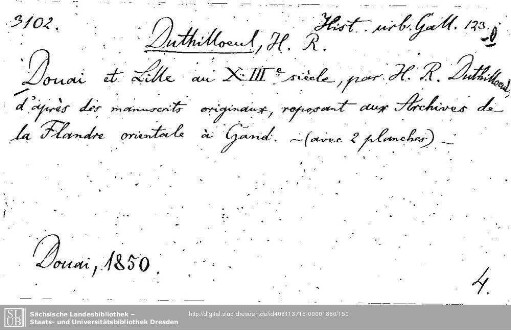 3102.
Hist. urb. Gall. 123.
Duthilloeul, H. R.
Douai et Lille au XIIIe siècle, par H. R. Duthilloeul,
d'après des manuscrits originaux, reposant aux Archives de
la Flandre orientale à Gand. - (avec 2 planches) -
Douai, 1850.
4.
Sächsische Landesbibliothek –
Staats- und Universitätsbibliothek Dresden